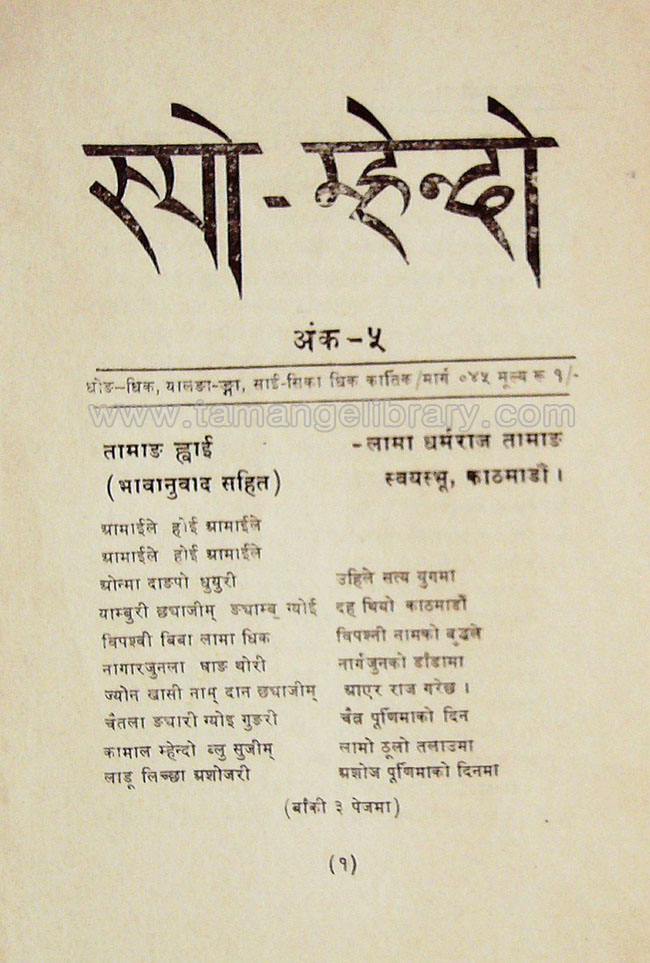 स्यो - म्हेन्दो
अंक - ५
धोङ-धिक, यालङा-ङ्गा, साई-सिका धिक कार्तिक/मार्ग ०४५ मूल्य रू १/-
www.tamangelibrary.com
तामाङ ह्वाई
(भावानुवाद सहित)
- लामा धर्मराज तामाङ
स्वयम्भू, काठमाडौं ।
आमाईले होई आमाईले
आमाईले होई आमाईले
ओन्मा दाङपो धुयुरी
याम्बुरी छ्याजीम् ङ्याम्ब् ग्योई
विपश्वी बिबा लामा धिक
नागारजुनला षाङ थोरी
ज्योन खासी नाम् दान छ्याजीम्
चैतला ङ्यारी ग्योइ गुङरी
कामाल म्हेन्दो ब्लु सुजीम्
लाडू लिच्छा अशोजरी
उहिले सत्य युगमा
दह थियो काठमाडौं
विपश्नी नामको बुद्धले
नार्गजुनको डाँडामा
आएर राज गरेछ ।
चैत्र पूर्णिमाको दिन
लामो ठूलो तलाउमा
अशोज पूर्णिमाको दिनमा
(बाँकी ३ पेजमा)
(१)